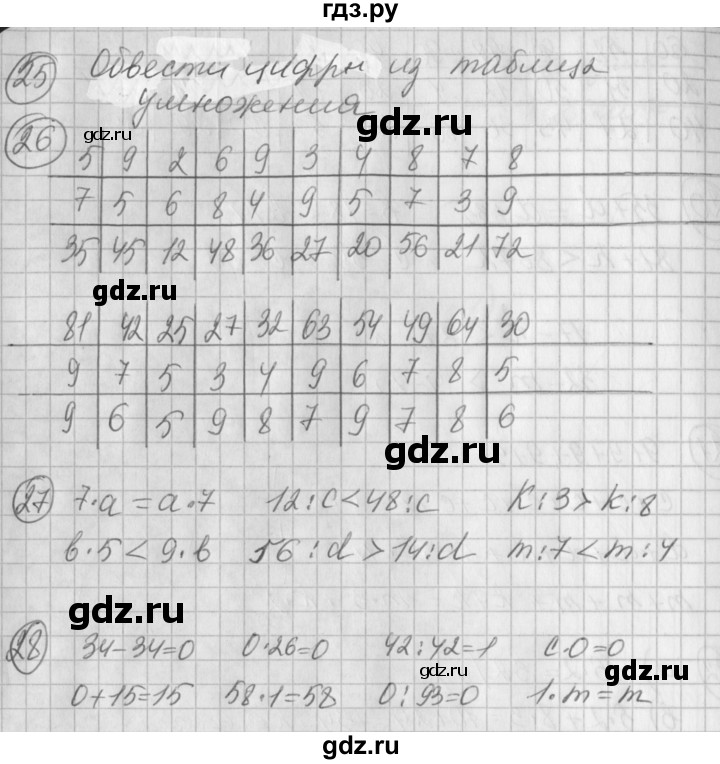 гдз.ру
25 Обвести цифры из таблица
умножения
gdz.ru
26 gdz.ru
5 9 2 6 9 3 4 8 7 8
7 5 6 8 4 9 5 7 3 9
35 45 12 48 36 27 20 56 21 72
gdz.ru
81 42 25 27 32 63 54 49 64 30
9 7 5 3 4 9 6 7 8 5
9 6 5 9 8 7 9 7 8 6
gdz.ru
27 7·a=a·7 12:c<48:c K:3>k:8
b·5<9·b 56:d>14:d m:7<m:4
gdz.ru
28 34-34=0 0·26=0 42:42=1 c·0=0
gdz.ru gdz.ru
0+15=15 58·1=58 0:93=0 1·m=m
gdz.ru